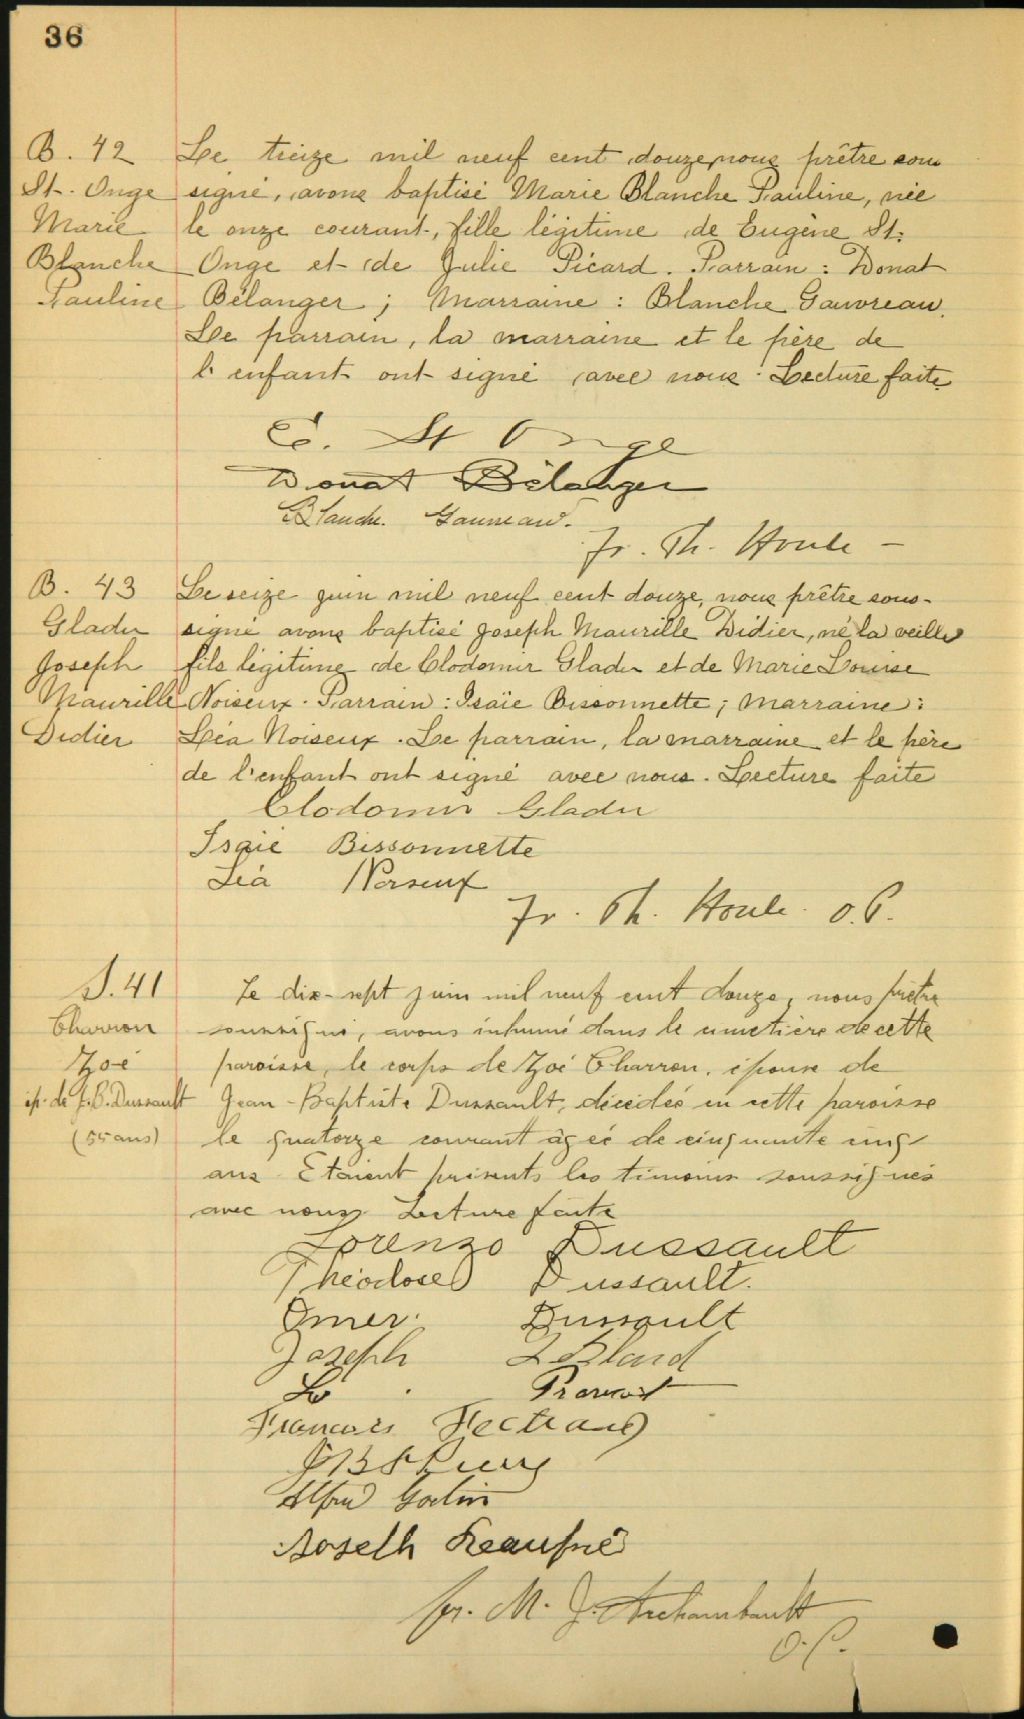 36
B. 42
St. Onge
Marie
Blanche
Pauline
Le treize mil neuf cent douze, nous prêtre sous
signé, avons baptisé Marie Blanche Pauline, née
le onze courant, fille légitime de Eugène St.
Onge et de Julie Picard. Parrain : Donat
Bélanger ; Marraine : Blanche Gauvreau.
Le parrain, la marraine et le père de
l'enfant ont signé avec nous. Lecture faite.
E. St Onge
Donat Bélanger
Blanche Gauvreau.
fr. Th. Houle –
B. 43
Gladu
Joseph
Maurille
Didier
Le seize juin mil neuf cent douze, nous prêtre sous-
signé avons baptisé Joseph Maurille Didier, né la veille
fils légitime de Clodomir Gladu et de Marie Louise
Noiseux. Parrain : Isaïe Bissonnette ; marraine :
Léa Noiseux. Le parrain, la marraine et le père
de l'enfant ont signé avec nous. Lecture faite
Clodomir Gladu
Isaie Bissonnette
Léa Noiseux
fr. Th. Houle. O.P.
S. 41
Charron
Zoé
ép. de J.B. Dussault
(55 ans)
Le dix-sept juin mil neuf cent douze, nous prêtre
soussigné, avons inhumé dans le cimetière de cette
paroisse, le corps de Zoé Charron, épouse de
Jean-Baptiste Dussault, décédée en cette paroisse
le quatorze courant âgée de cinquante cinq
ans. Etaient présents les témoins soussignés
avec nous. Lecture faite
Lorenzo Dussault
Théodose Dussault.
Omer Dussault
Joseph LeBlond
Provost
Francois Fecteau
J B St Pierre
Alfred Godin
Joseph Beaupré
fr. M. J. Archambault
O.P.